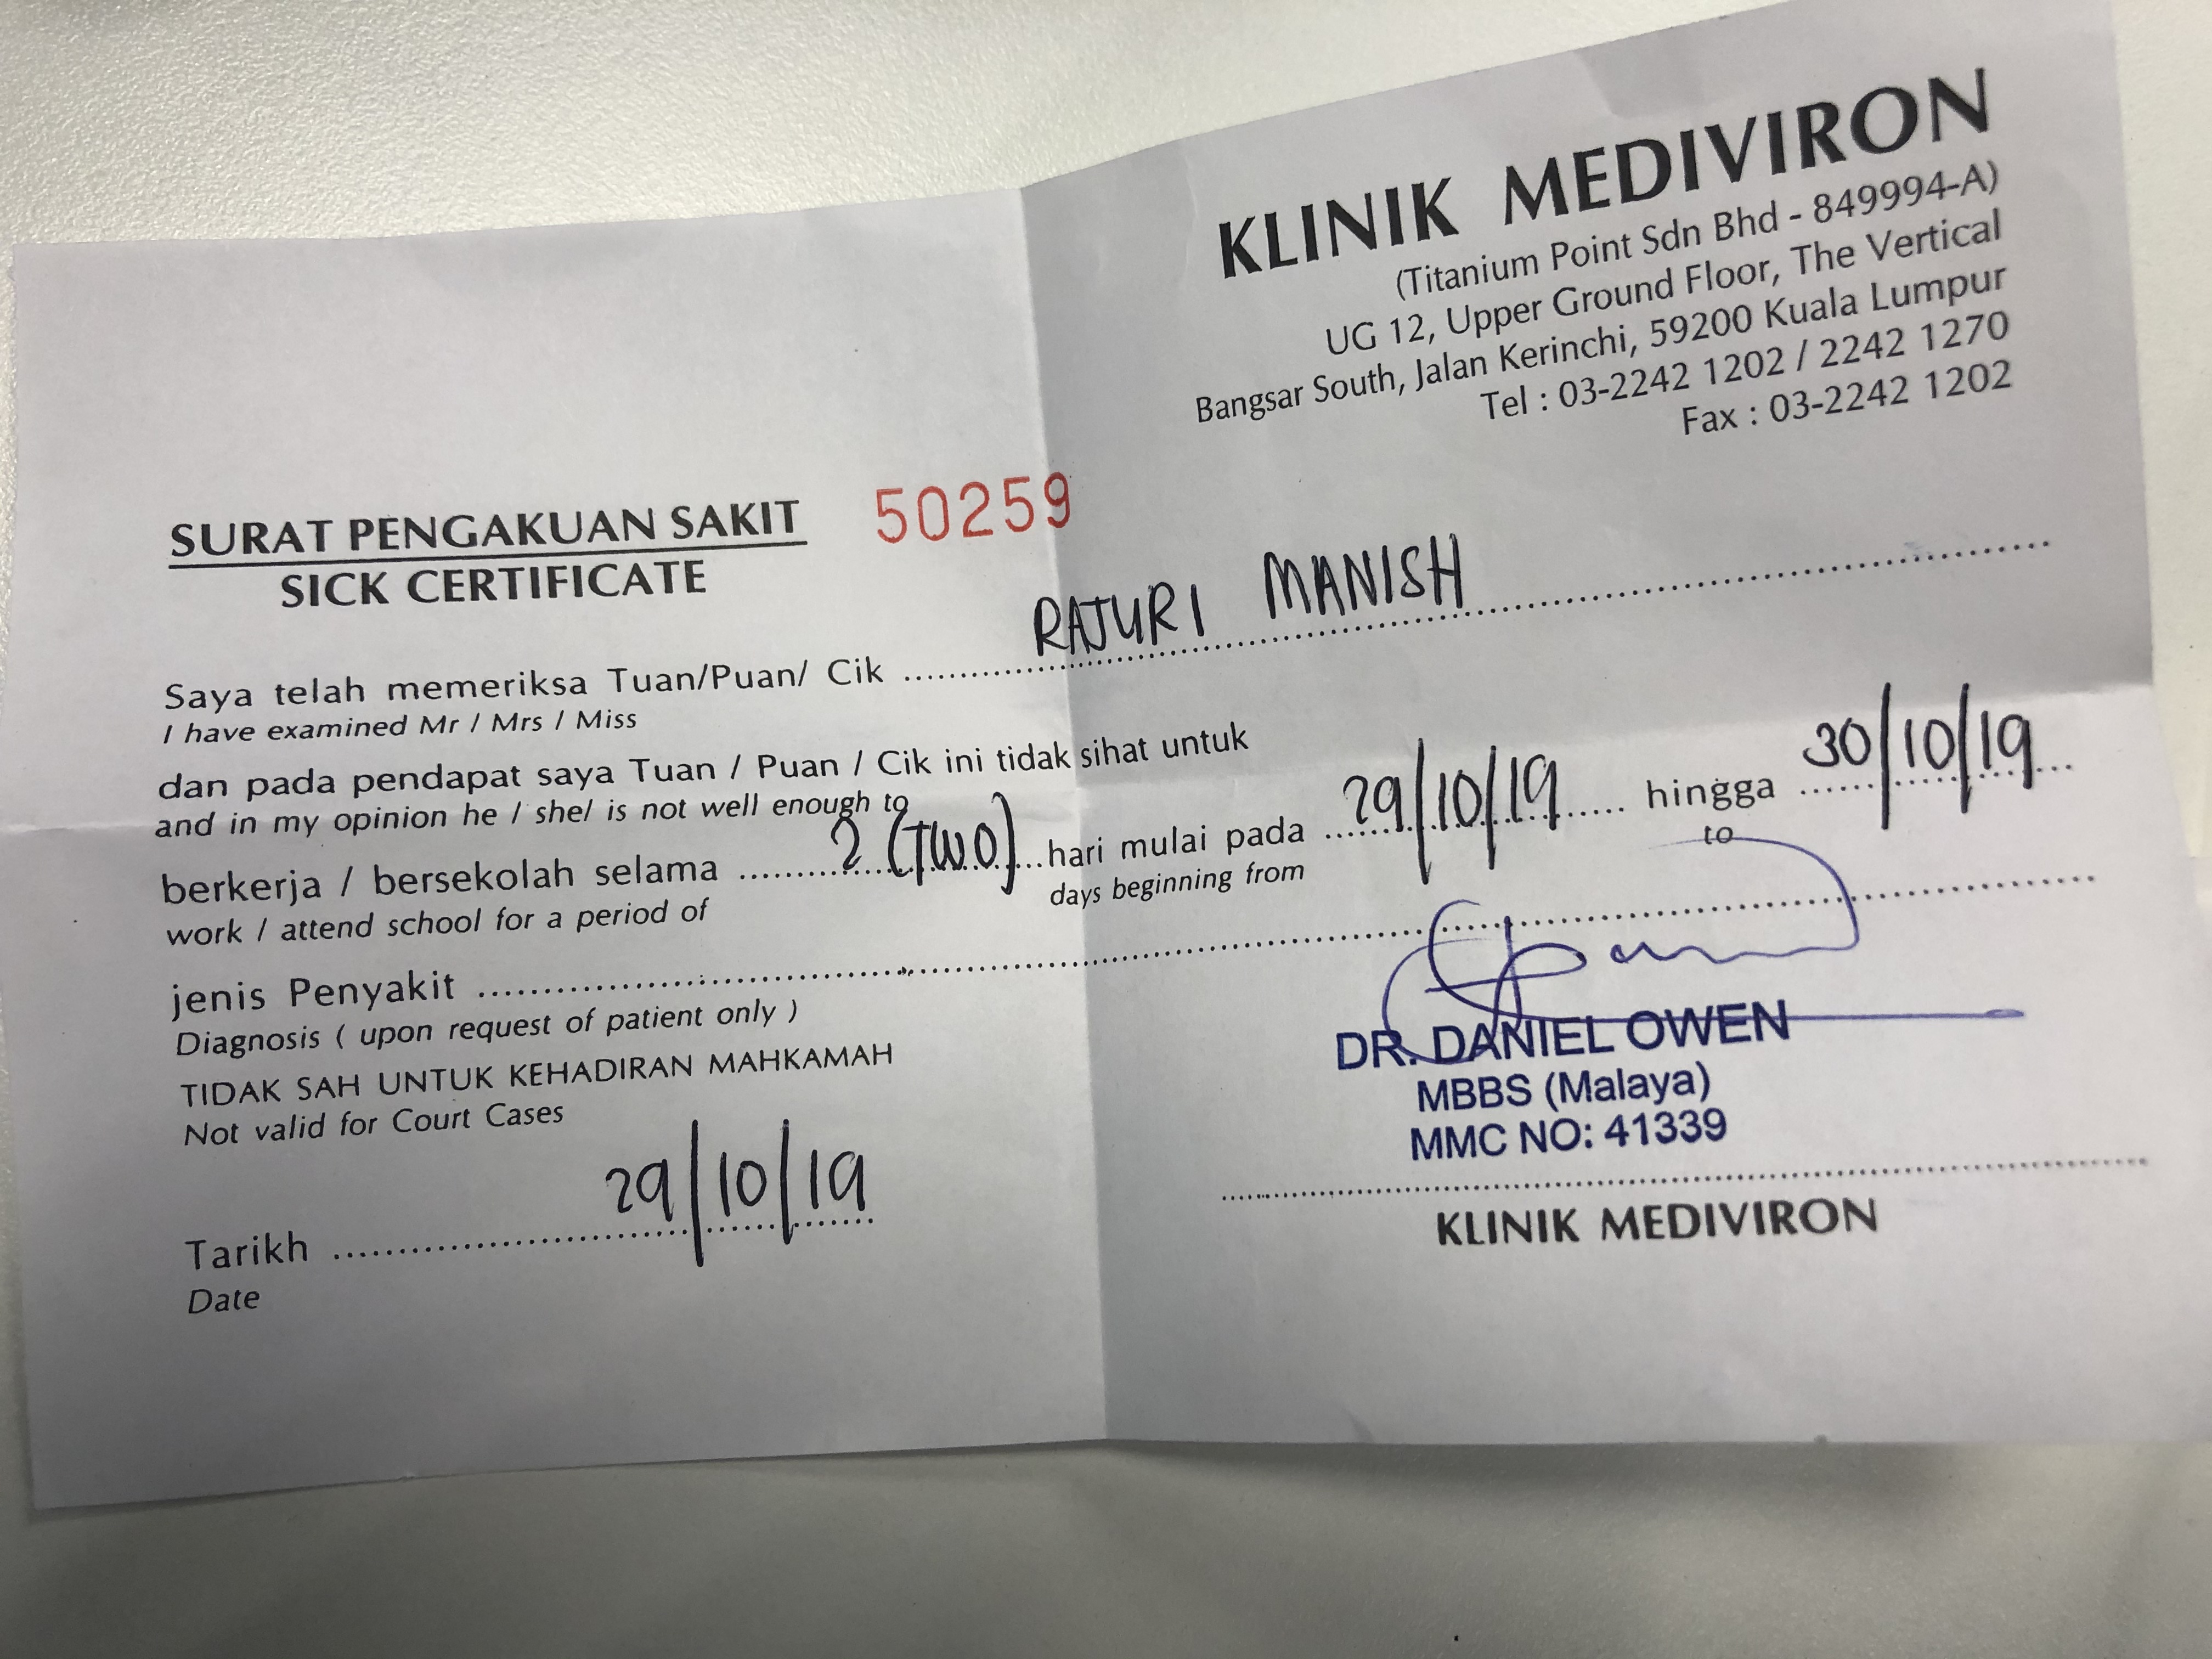 KLINIK MEDIVIRON
(Titanium Point Sdn Bhd - 849994-A)
UG 12, Upper Ground Floor, The Vertical
Bangsar South, Jalan Kerinchi, 59200 Kuala Lumpur
Tel : 03-2242 1202 / 2242 1270
Fax : 03-2242 1202
SURAT PENGAKUAN SAKIT 50259
SICK CERTIFICATE
Saya telah memeriksa Tuan/Puan/ Cik RATURI MANISH
I have examined Mr / Mrs / Miss
dan pada pendapat saya Tuan / Puan / Cik ini tidak sihat untuk
and in my opinion he / she/ is not well enough to
berkerja / bersekolah selama 2 (TWO) hari mulai pada 29/10/19 hingga 30/10/19
work / attend school for a period of days beginning from to
jenis Penyakit
Diagnosis ( upon request of patient only )
TIDAK SAH UNTUK KEHADIRAN MAHKAMAH
Not valid for Court Cases
DR. DANIEL OWEN
MBBS (Malaya)
MMC NO: 41339
Tarikh 29/10/19
Date
KLINIK MEDIVIRON